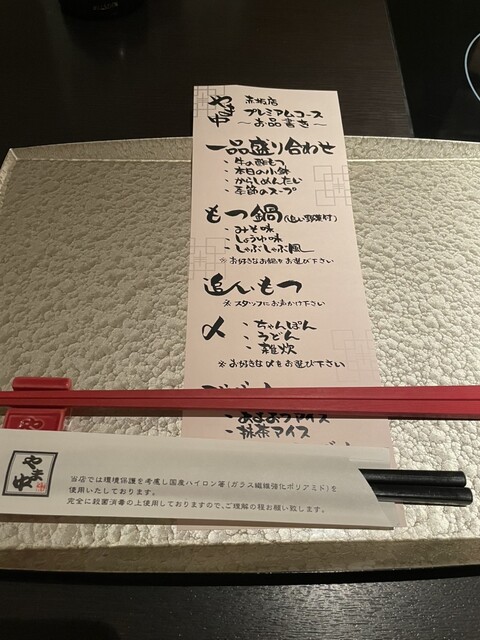 やま中
赤坂店
プレミアムコース
～お品書き～
一品盛り合わせ
・牛の酢もつ
・本日の小鉢
・からしめんたい
・季節のスープ
もつ鍋(追い野菜付)
・みそ味
・しょうゆ味
・しゃぶしゃぶ風
※お好きなお鍋をお選び下さい
追いもつ
※スタッフにお声かけ下さい
〆
・ちゃんぽん
・うどん
・雑炊
※お好きな〆をお選び下さい
・あまおうアイス
・抹茶アイス
やま中
当店では環境保護を考慮し国産ハイロン箸(ガラス繊維強化ポリアミド)を
使用いたしております。
完全に殺菌消毒の上使用しておりますので、ご理解の程お願い致します。